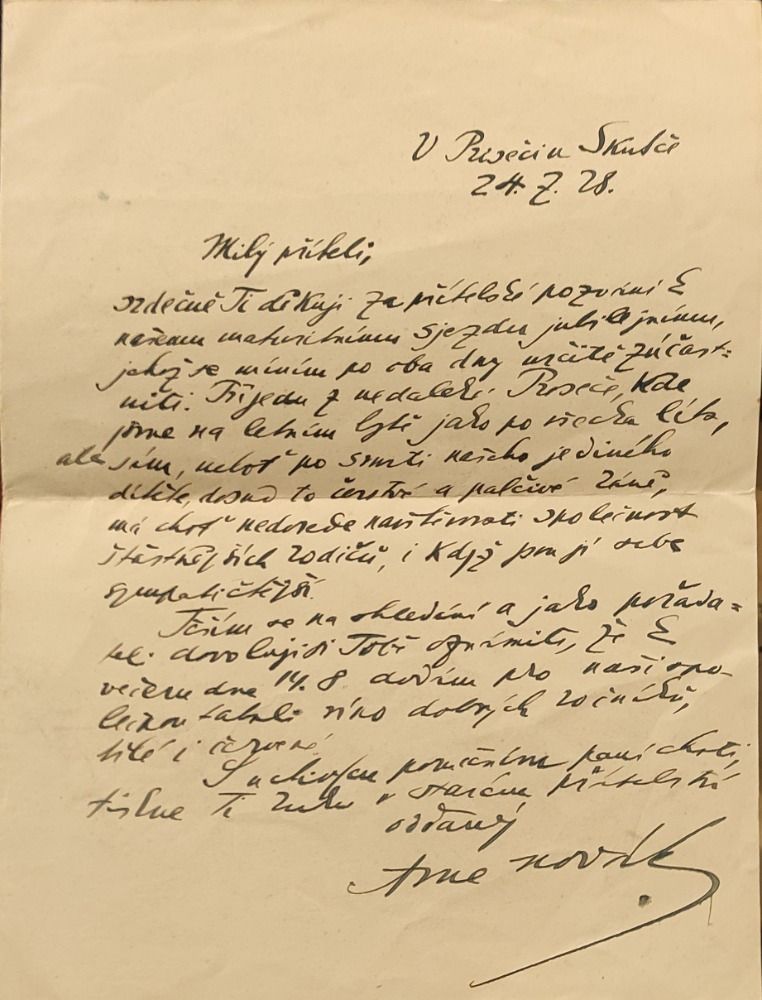 V Proseči u Skutče
24. 7. 28.
Milý příteli,
srdečně Ti děkuji za přátelské pozvání k
našemu maturitnímu sjezdu jubilejnímu,
jehož se míním po oba dny určitě zúčast=
niti. Přijedu z nedaleké Proseče, kde
jsme na letním bytě jako po všecka léta,
ale sám, neboť po smrti našeho jediného
dítěte, dosud to čerstvé a palčivé ráně,
má choť nedovede navštěvovati společnost
šťastnějších rodičů, i když jsou jí sebe
sympatičtější.
Těším se na shledání a jako pořada=
tel. dovoluji si Tobě oznámiti, že k
večeru dne 14. 8. dodám pro naši spo-
lečnou tabuli víno dobrých ročníků,
bílé i červené.
S uctivým poručením paní choti,
tiskne Ti ruku v starém přátelství
oddaný
Arne Novák